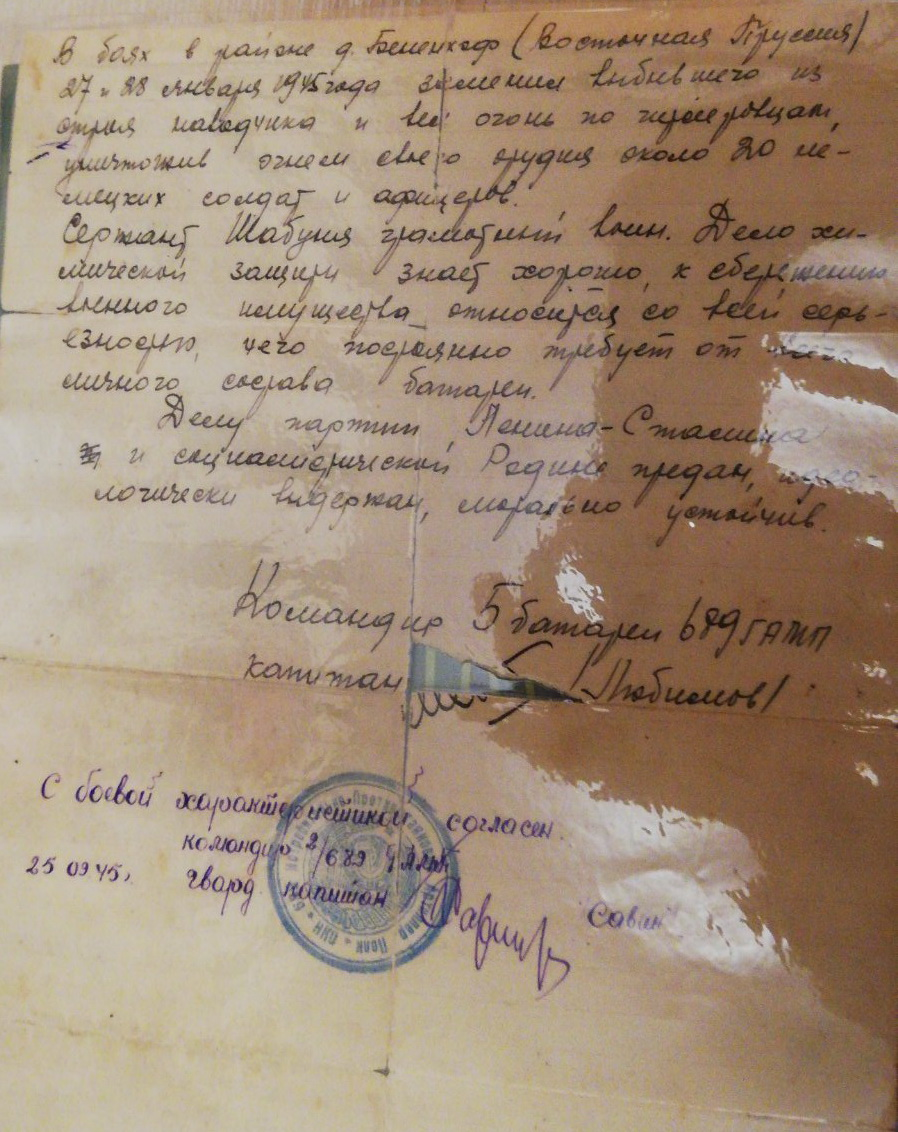 В боях в районе д. Бененхоф (Восточная Пруссия)
27 и 28 января 1945 года заменил выбывшего из
строя наводчика и вел огонь по гитлеровцам,
уничтожив огнем своего орудия около 20 не-
мецких солдат и афицеров.
Сержант Шабуня грамотный воин. Дело хи-
мической защиты знает хорошо, к сбережению
военного имущества относится со всей серь-
езностью, чего постоянно требует от всего
личного состава батареи.
Делу партии Ленина-Сталина
и социалистической Родине предан, идео-
логически выдержан, морально устойчив.
Командир 5 батареи 689 ГАПП
капитан /Любимов/
С боевой характеристикой согласен.
командир 2/689
25 09 45г. гвард. капитан "Савин"
Полк